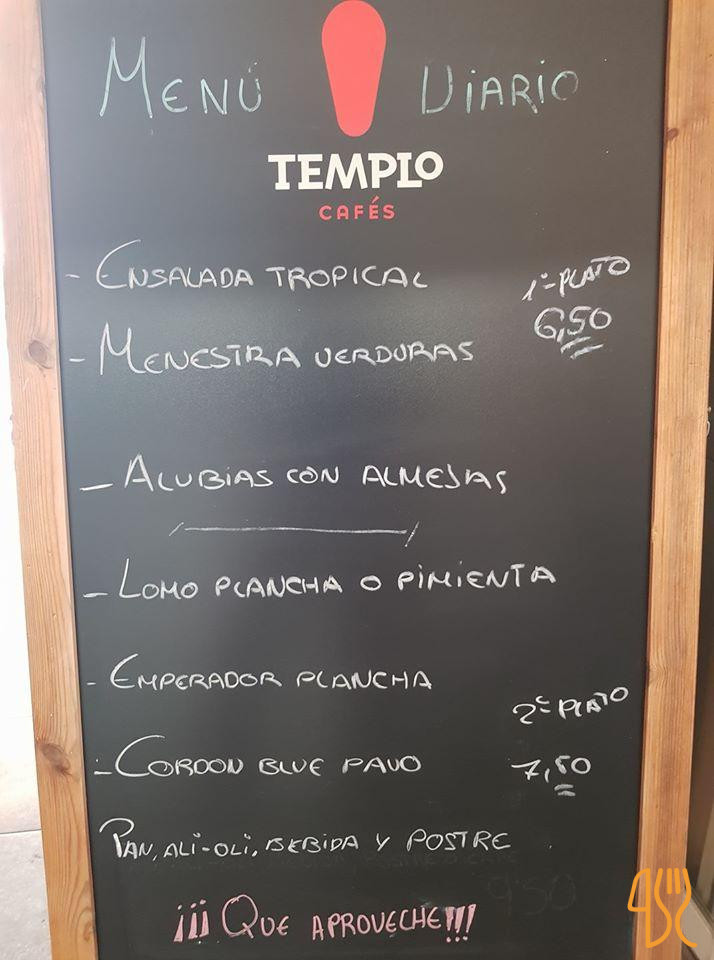 MENÚ DIARIO
TEMPLO
CAFÉS
- ENSALADA TROPICAL
1º PLATO
6,50
- MENESTRA VERDURAS
- ALUBIAS CON ALMEJAS
- LOMO PLANCHA O PIMIENTA
- EMPERADOR PLANCHA
2º PLATO
- CORDON BLUE PAVO
7,50
PAN, ALI-OLI, BEBIDA Y POSTRE
¡¡¡QUE APROVECHE!!!